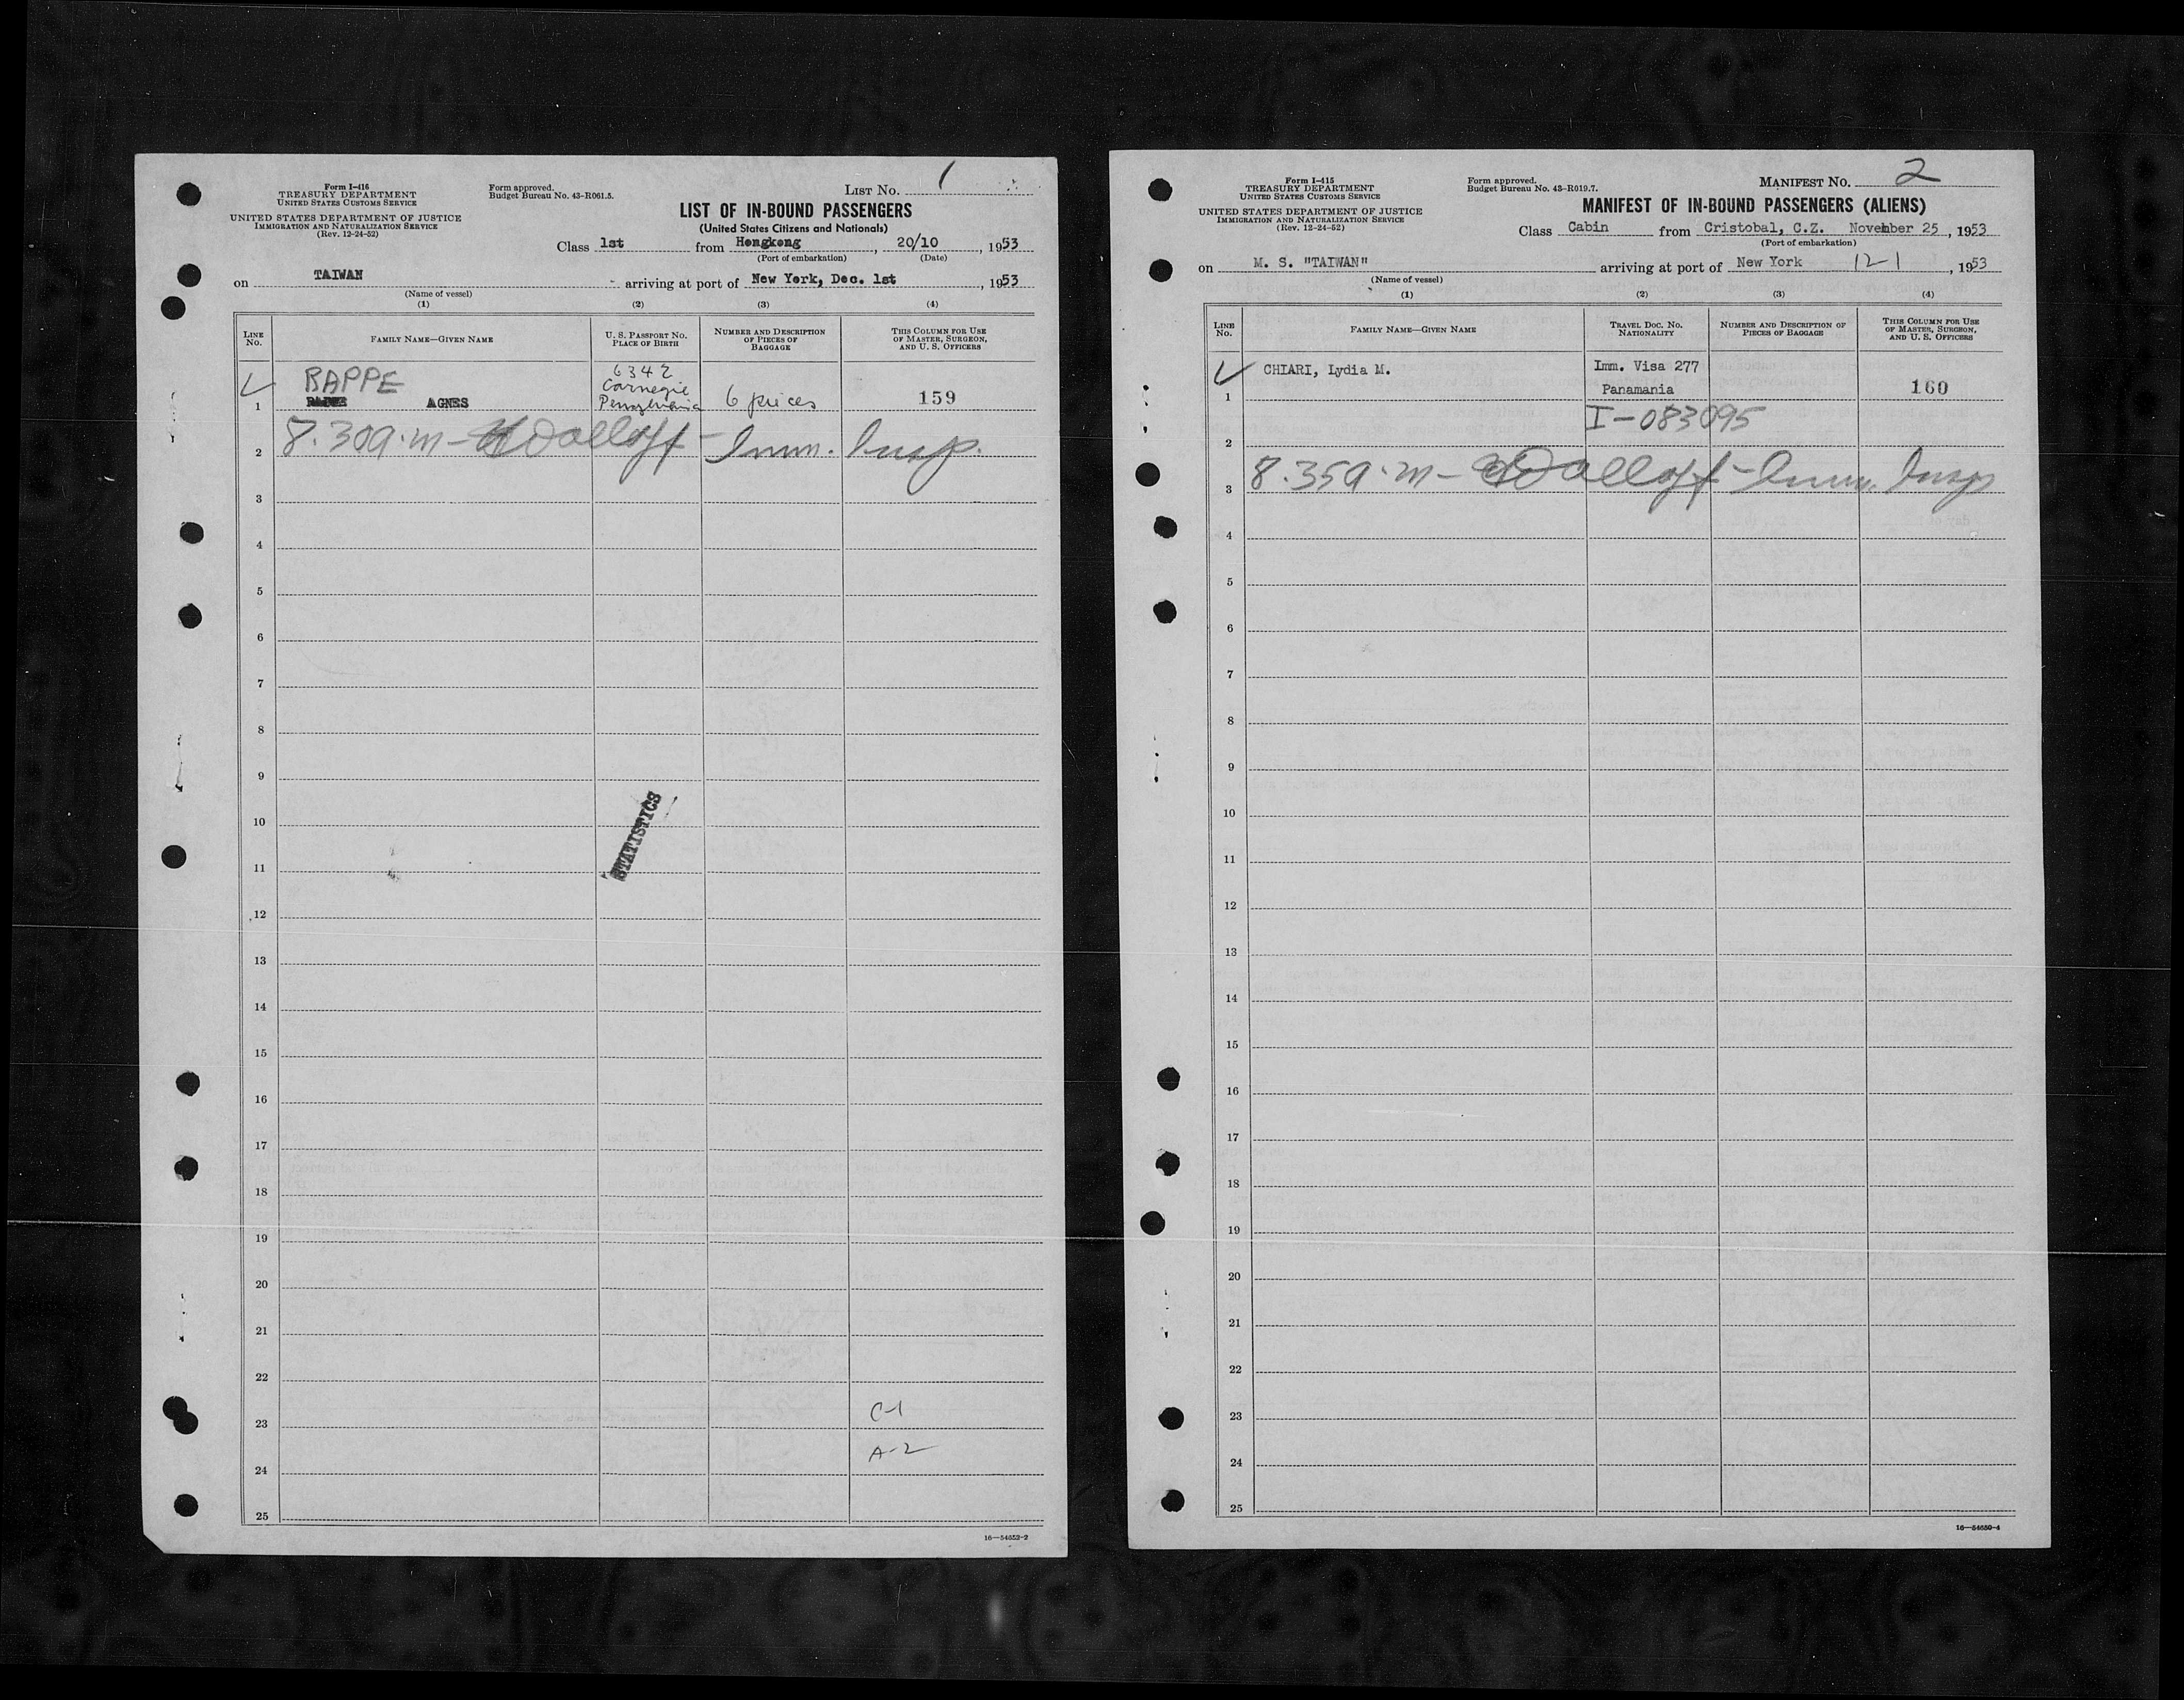 Form I-416
TREASURY DEPARTMENT
UNITED STATES CUSTOMS SERVICE
UNITED STATES DEPARTMENT OF JUSTICE
IMMIGRATION AND NATURALIZATION SERVICE
(Rev. 12-24-52)
Form approved.
Budget Bureau No. 43-R061.5.
LIST No. 1
LIST OF IN-BOUND PASSENGERS
(United States Citizens and Nationals)
Class 1st from Hongkong, 20/10, 1953
(Port of embarkation) (Date)
on TAIWAN arriving at port of New York, Dec. 1st, 1953
(Name of vessel)
(1) (2) (3) (4)
LINE No. FAMILY NAME—GIVEN NAME U. S. PASSPORT No. PLACE OF BIRTH NUMBER AND DESCRIPTION OF PIECES OF BAGGAGE THIS COLUMN FOR USE OF MASTER, SURGEON, AND U. S. OFFICERS
1 RAPPE AGNES 6342 Carnegie Pennsylvania 6 pieces 159
2 8.30a.m - Dalloff - Imm. Insp.
3
4
5
6
7
8
9
10
STATISTICS
11
12
13
14
15
16
17
18
19
20
21
22
23 C-1
A-2
24
25
16—54652-2
Form I-415
TREASURY DEPARTMENT
UNITED STATES CUSTOMS SERVICE
UNITED STATES DEPARTMENT OF JUSTICE
IMMIGRATION AND NATURALIZATION SERVICE
(Rev. 12-24-52)
Form approved.
Budget Bureau No. 43-R019.7.
MANIFEST No. 2
MANIFEST OF IN-BOUND PASSENGERS (ALIENS)
Class Cabin from Cristobal, C.Z. November 25, 1953
(Port of embarkation)
on M. S. "TAIWAN" arriving at port of New York 12-1, 1953
(Name of vessel)
(1) (2) (3) (4)
LINE No. FAMILY NAME—GIVEN NAME TRAVEL DOC. No. NATIONALITY NUMBER AND DESCRIPTION OF PIECES OF BAGGAGE THIS COLUMN FOR USE OF MASTER, SURGEON, AND U. S. OFFICERS
1 CHIARI, Lydia M. Imm. Visa 277 Panamania 160
I-083095
2
3 8.35a.m - Dalloff - Imm. Insp
4
5
6
7
8
9
10
11
12
13
14
15
16
17
18
19
20
21
22
23
24
25
16—54650-4